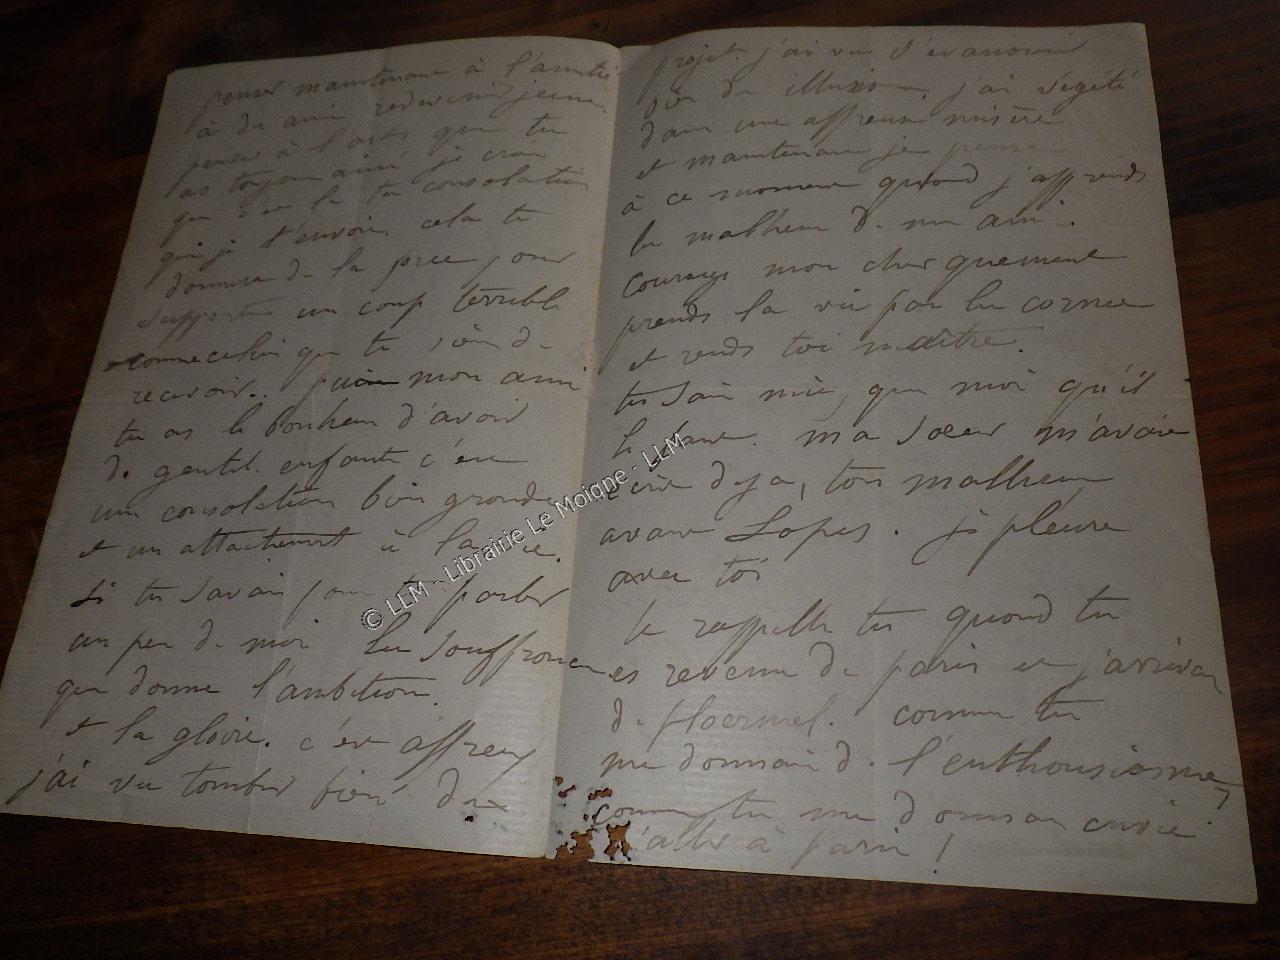 penser maintenant à l'amitié
à de amis redevient jeune
pense à l'arts que tu
as toujour aimé je croi
que c'es la ta consolation
que je t'envoie. cela te
donnera de la force pour
supporter un coup terrible
comme celui que tu vien de
recevoir.. puis mon ami
tu as le bonheur d'avoir
de gentil. enfants c'est
une consolation bien grande
et un attachement à la vie.
si tu savais pour te parler
un peu de moi les souffrances
que donne l'ambition
et la gloire. c'est affreux
j'ai vu tomber bien des
projet. j'ai vu s'evanouir
bien de illusion. j'ai végété
dans une affreuse misère
et maintenant je pense
à ce moment quand j'apprends
le malheur de mon ami.
courage mon cher quemene
prends la vie par les cornes
et rends toi maître.
tu sais mieux que moi qu'il
le faut. ma soeur m'avait
écrit deja, ton malheur
avant Lopes. je pleure
avec toi
te rappelle tu quand tu
es revenu de paris et j'arrivai
de ploermel. comme tu
me donnais de l'enthousiasme,
comme tu me donnais envie
d'aller à paris !
© LLM - Librairie Le Moigne - LLM